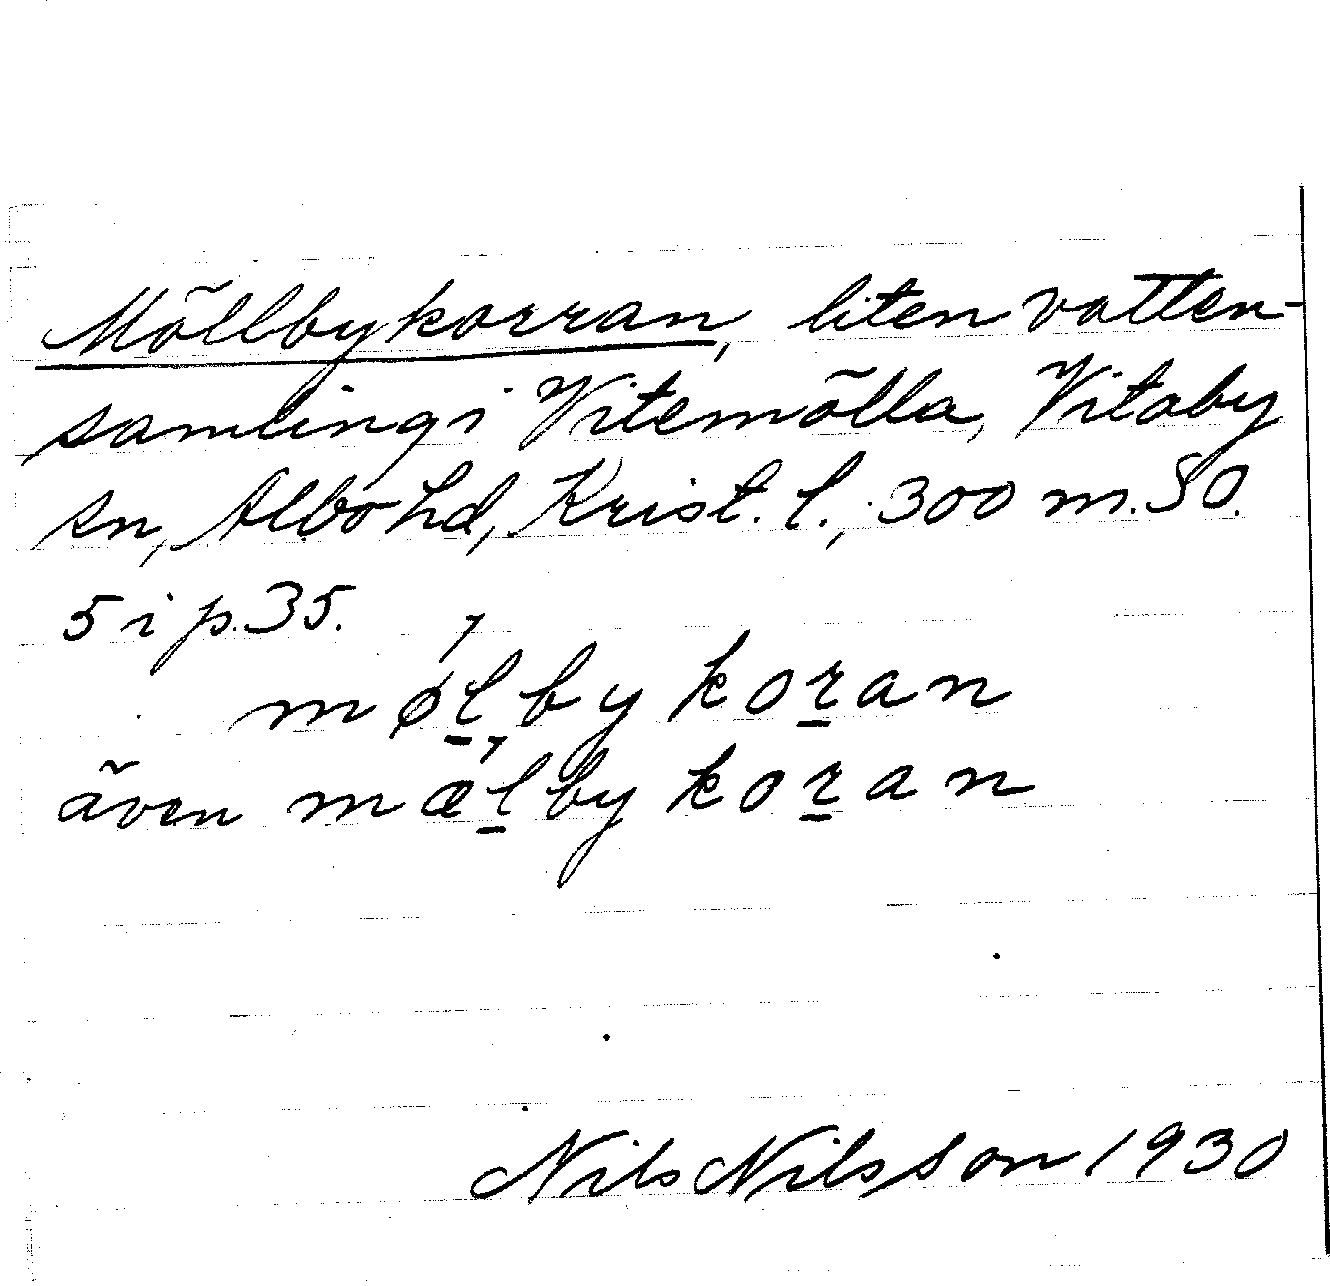 Möllbykorran, liten vatten-
samling i Vitemölla, Vitaby
sn, Albo hd, Krist. l., 300 m. SO.
5 i p. 35.
møl̲bykor̲an
även mæl̲bykor̲an
Nils Nilsson 1930